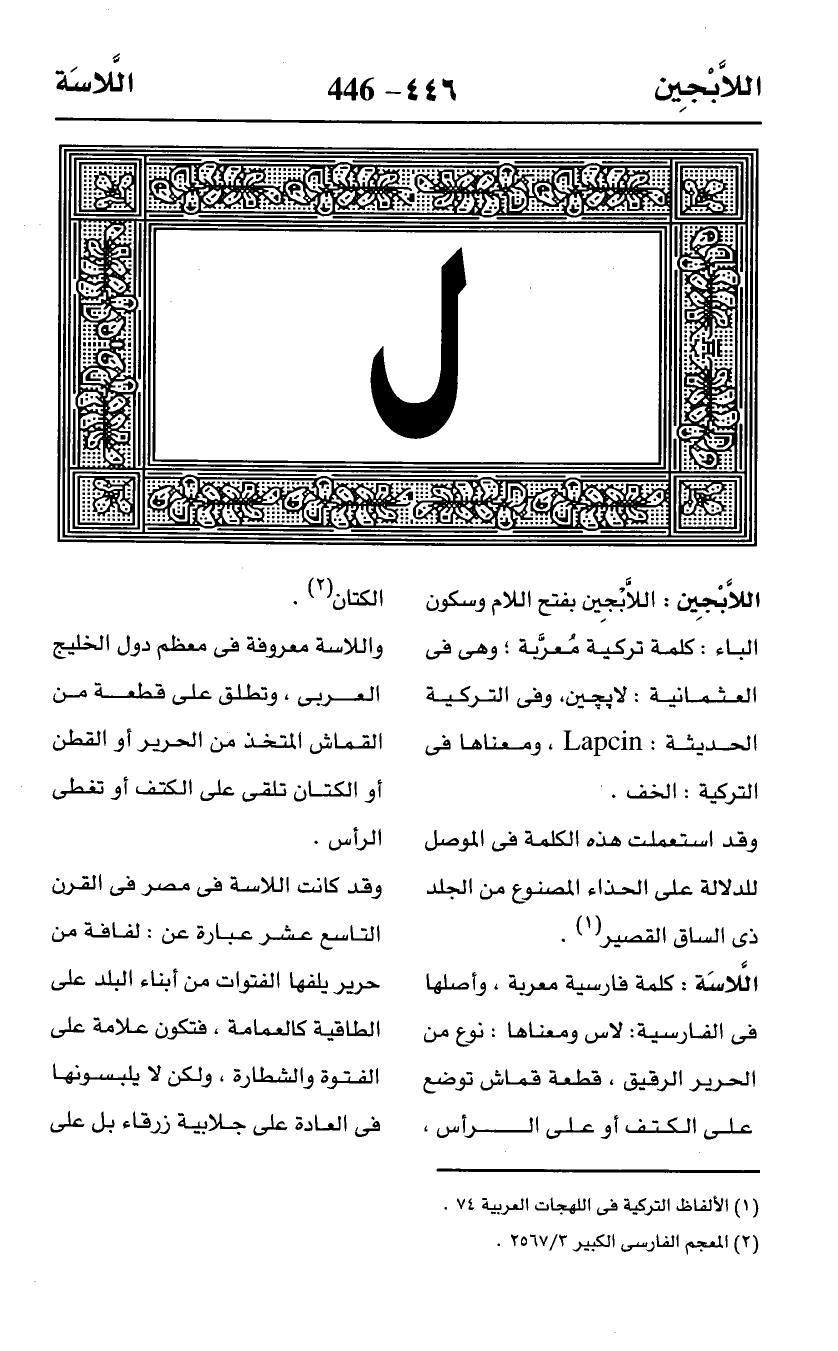 اللاَّبْجِين
٤٤٦ – 446
اللَّاسَة
ل
اللاَّبْجِين : اللاَّبْجِين بفتح اللام وسكون
الباء : كلمة تركية مُعرَّبة ؛ وهى فى
العثمانية : لاپچين، وفى التركية
الحديثة : Lapcin ، ومعناها فى
التركية : الخف .
وقد استعملت هذه الكلمة فى الموصل
للدلالة على الحذاء المصنوع من الجلد
ذى الساق القصير(١) .
اللَّاسَة : كلمة فارسية معربة ، وأصلها
فى الفارسية: لاس ومعناها : نوع من
الحرير الرقيق ، قطعة قماش توضع
على الكتف أو على الرأس ،
الكتان(٢) .
واللاسة معروفة فى معظم دول الخليج
العربى ، وتطلق على قطعة من
القماش المتخذ من الحرير أو القطن
أو الكتان تلقى على الكتف أو تغطى
الرأس .
وقد كانت اللاسة فى مصر فى القرن
التاسع عشر عبارة عن : لفافة من
حرير يلفها الفتوات من أبناء البلد على
الطاقية كالعمامة ، فتكون علامة على
الفتوة والشطارة ، ولكن لا يلبسونها
فى العادة على جلابية زرقاء بل على
(١) الألفاظ التركية فى اللهجات العربية ٧٤ .
(٢) المعجم الفارسى الكبير ٢٥٦٧/٣ .